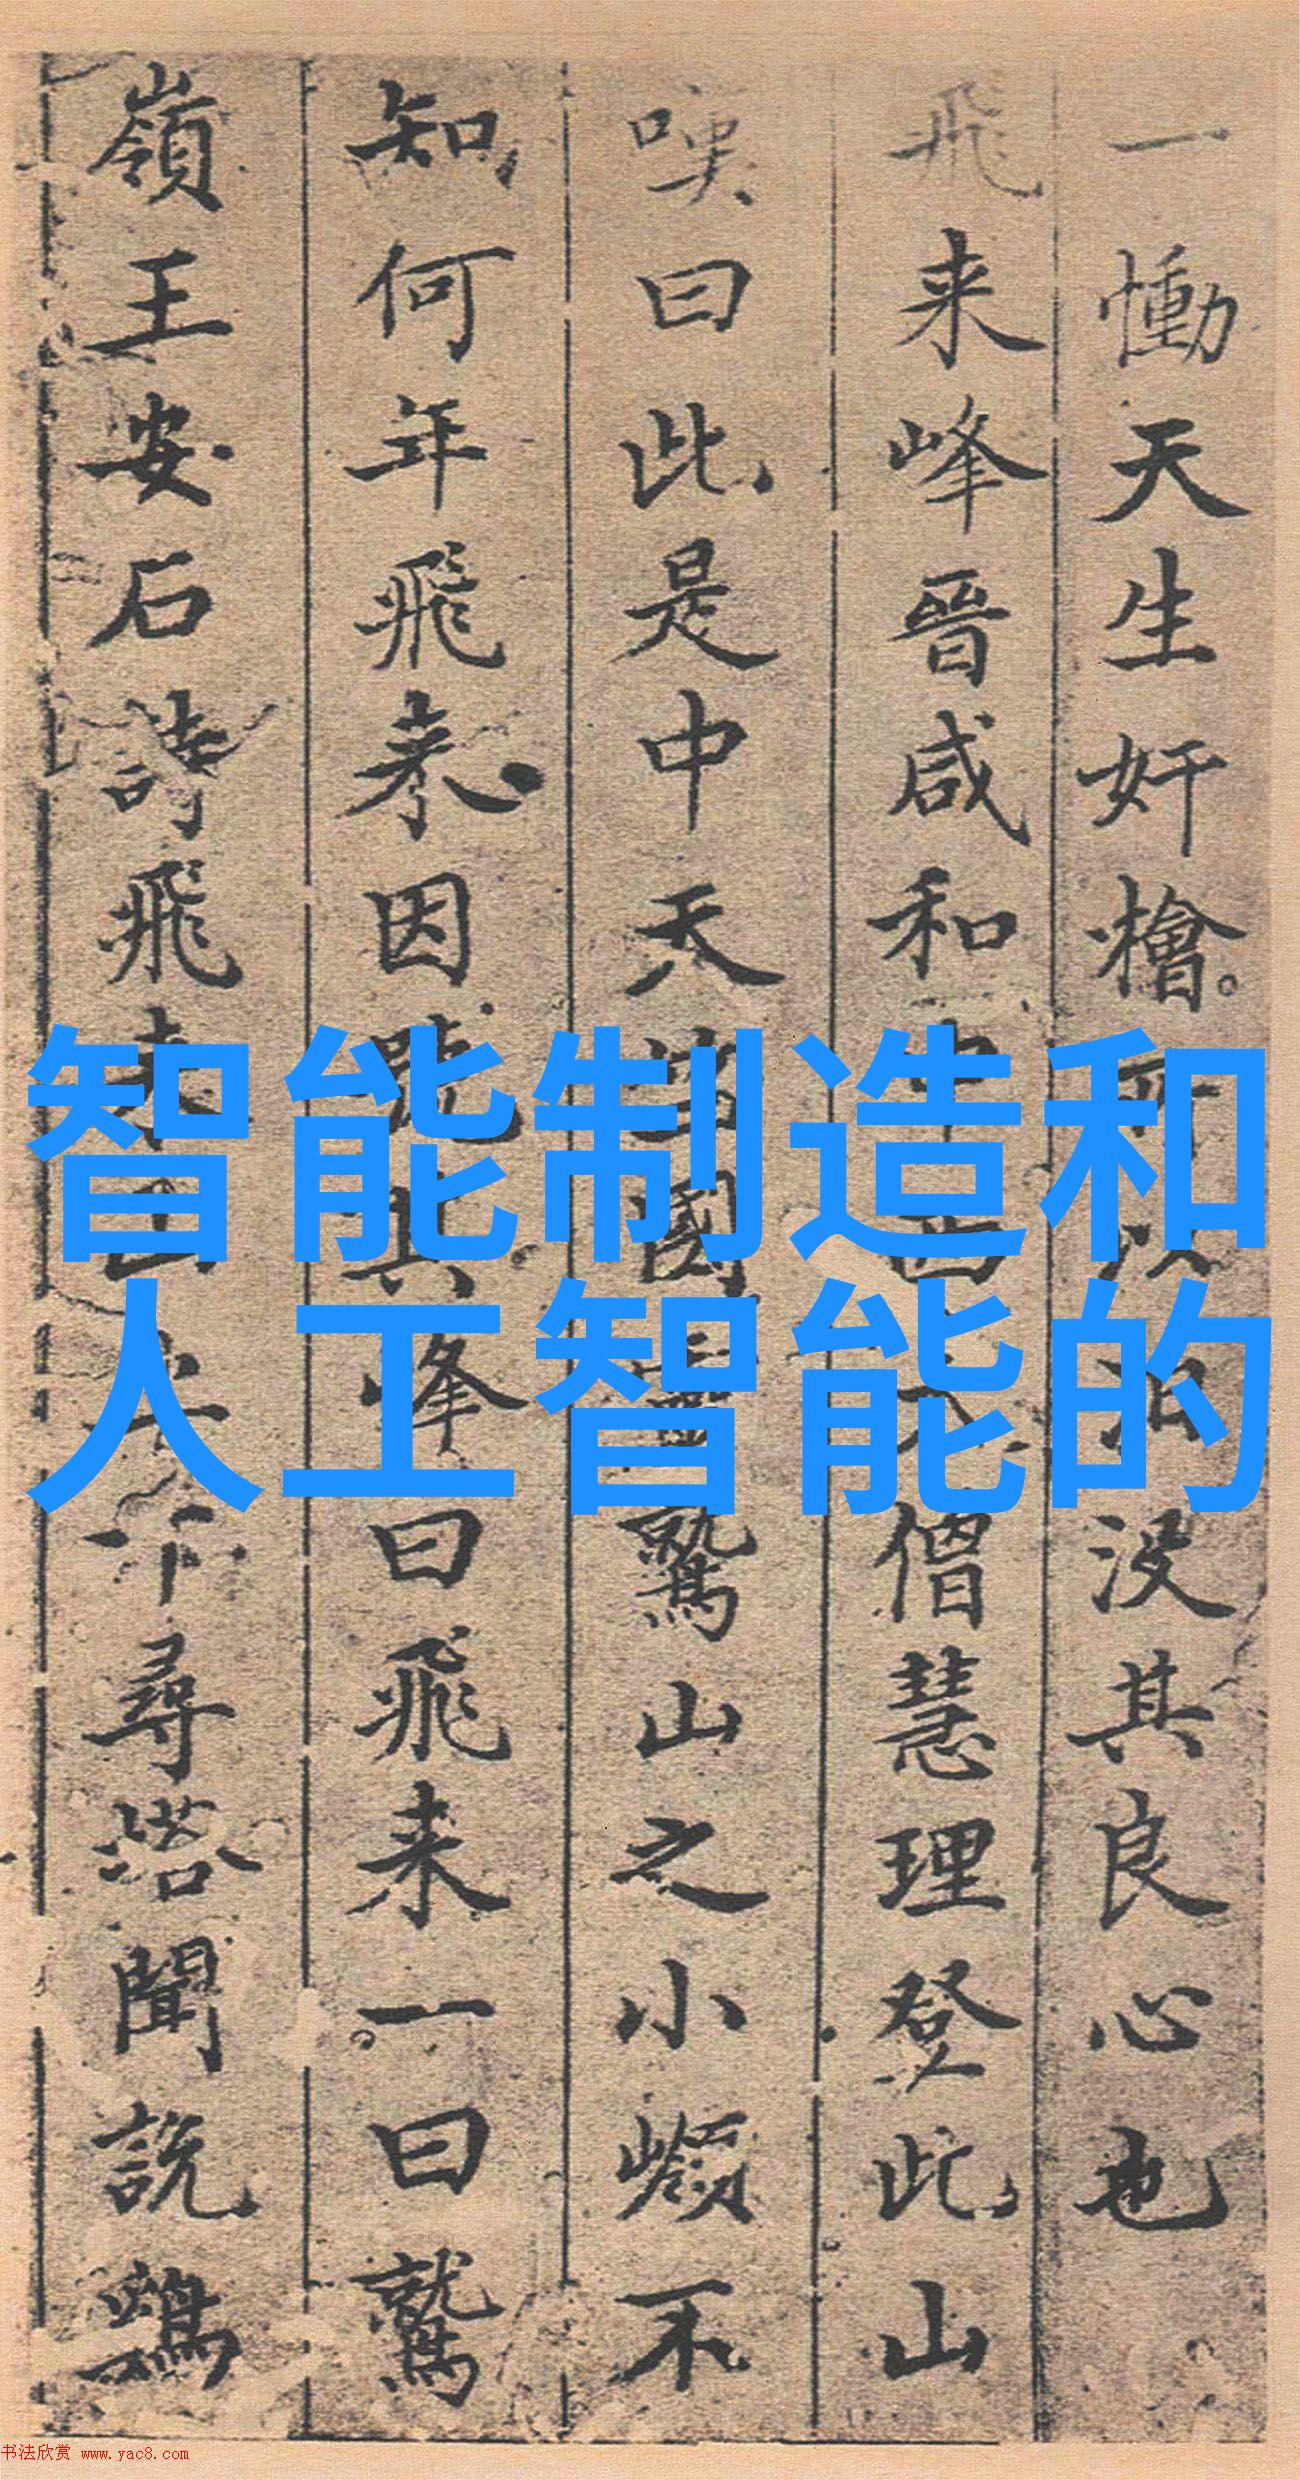 一慟天生奸檜所以汩没其良心也
飛来峰晉咸和中西天僧慧理登此山
嘆曰此是中天竺國靈鷲山之小嶺不
知何年飛来因號其峰曰飛来一曰鷲
嶺王安石詩飛来山上千尋塔聞說鷄
智能制造和
人工智能的
书法欣赏 www.yac8.com